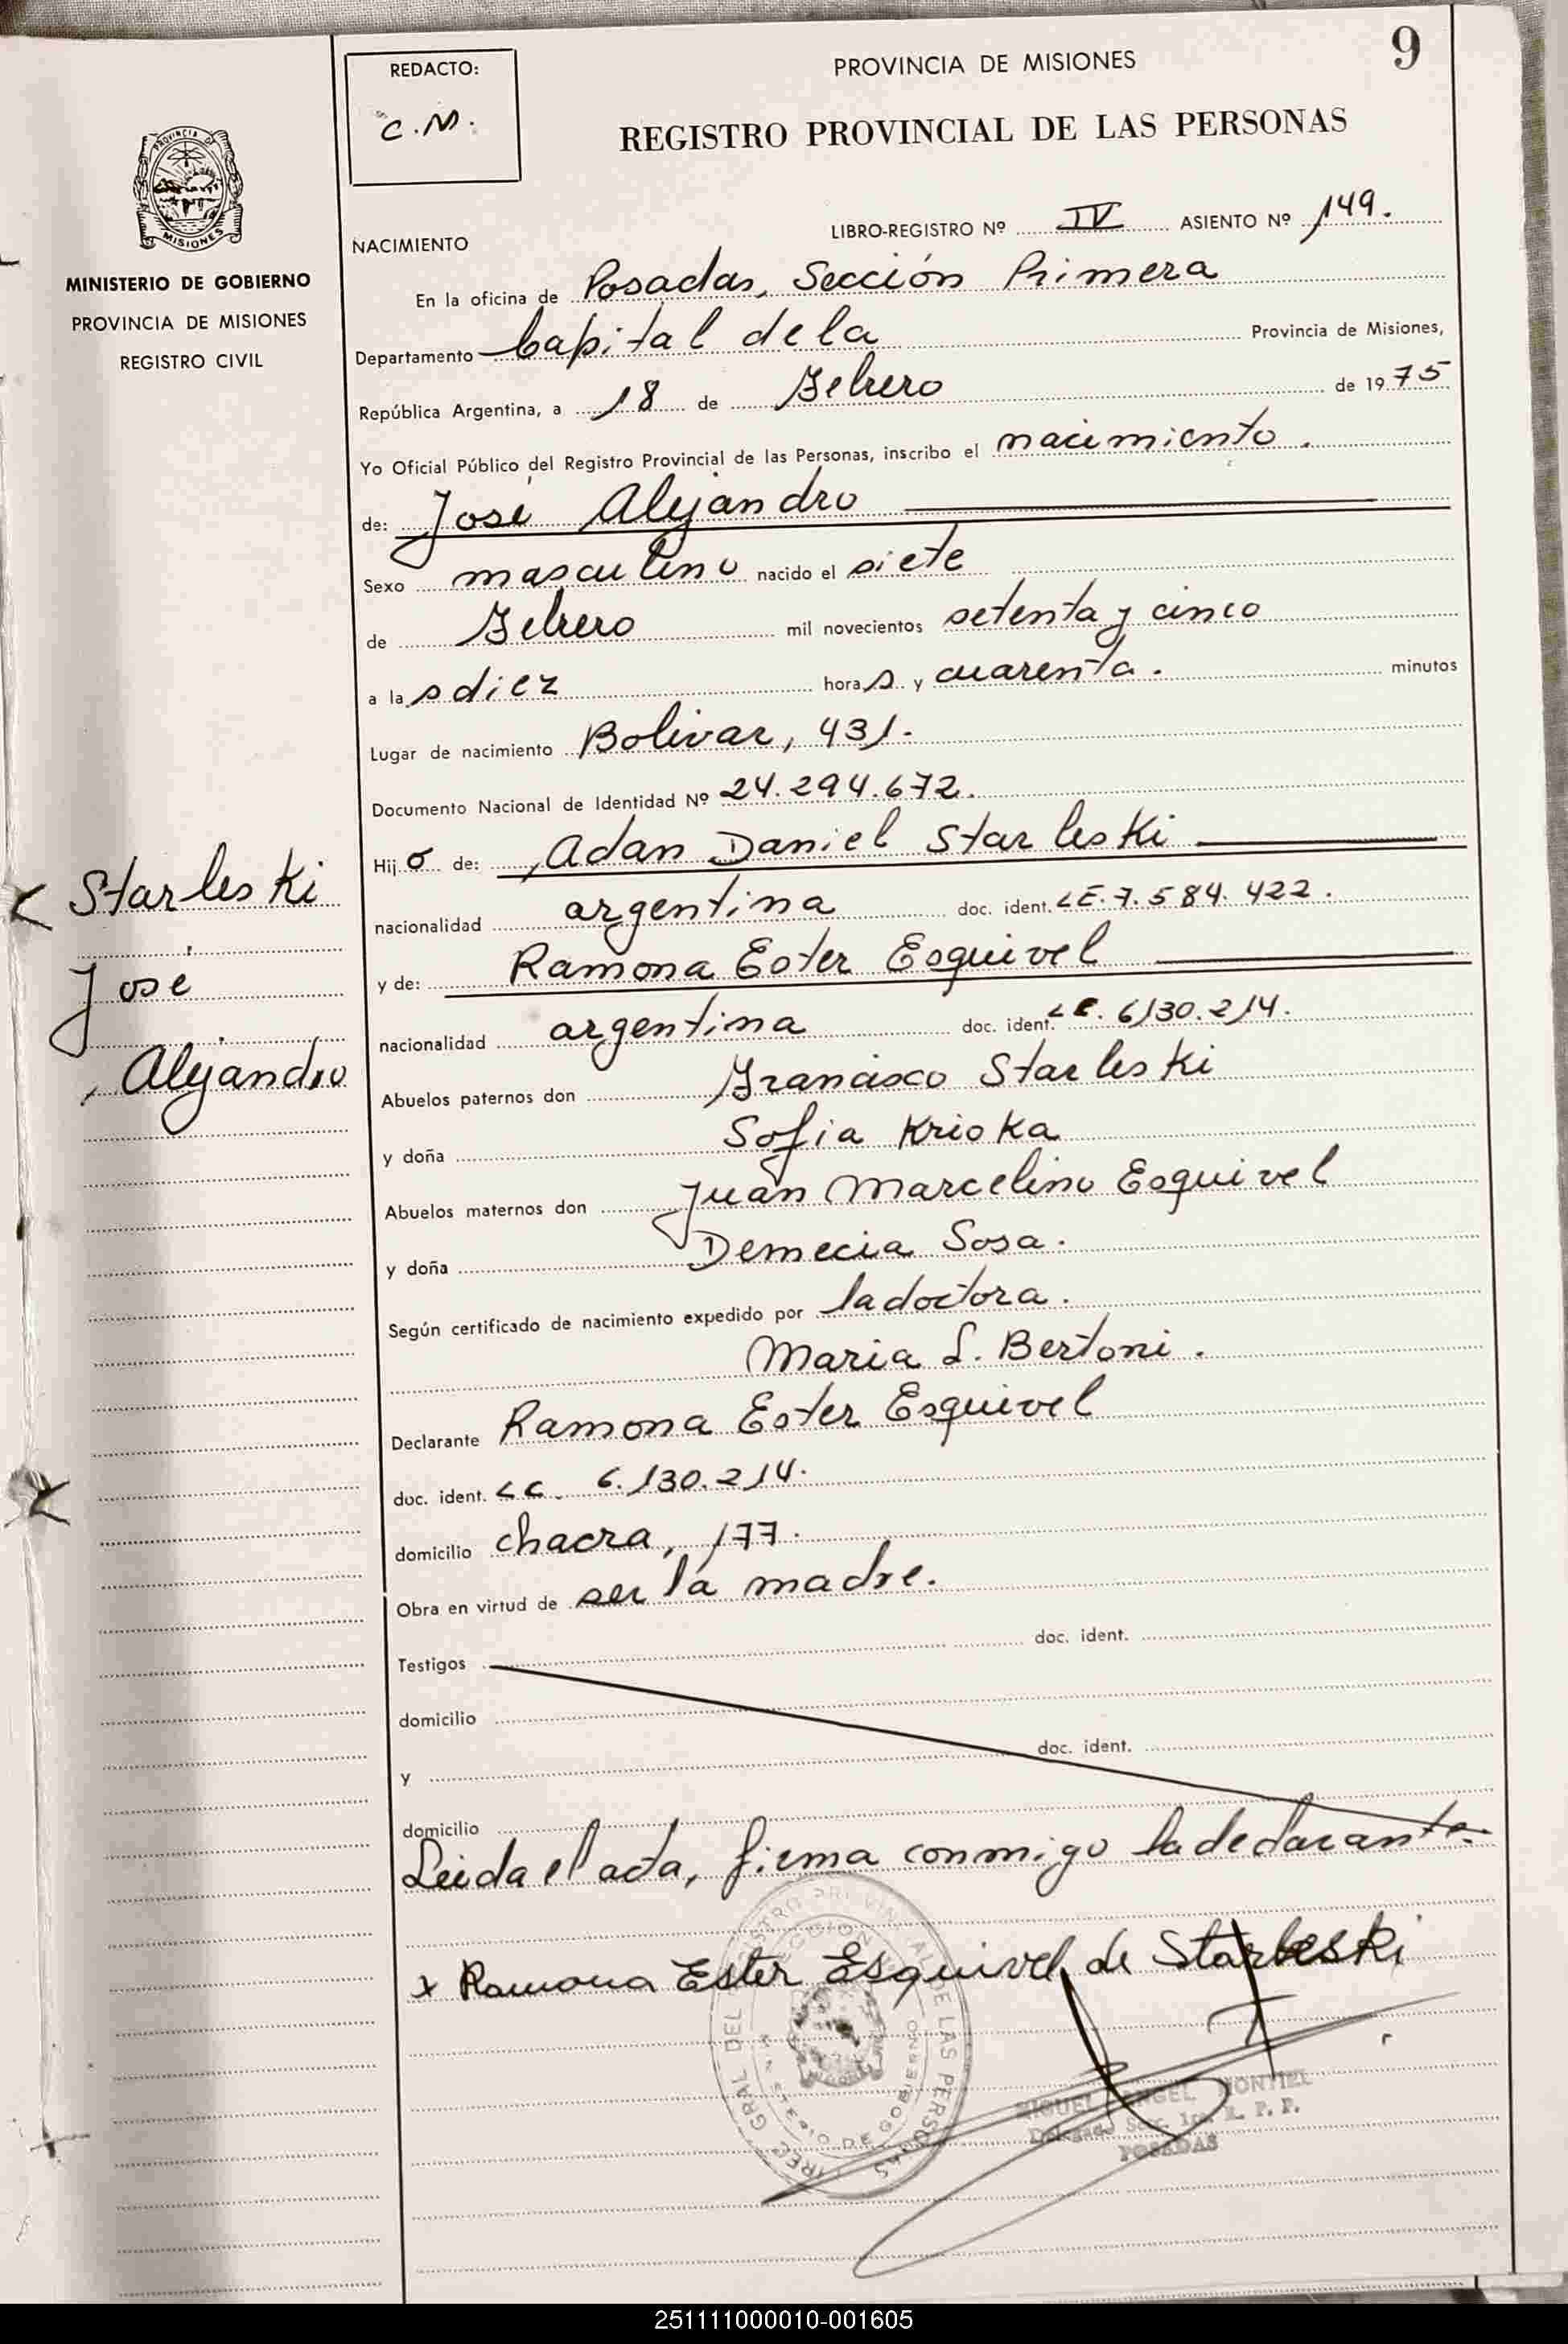 9
REDACTO:
C.M.
PROVINCIA DE MISIONES
REGISTRO PROVINCIAL DE LAS PERSONAS
PROVINCIA DE
MISIONES
MINISTERIO DE GOBIERNO
PROVINCIA DE MISIONES
REGISTRO CIVIL
NACIMIENTO
LIBRO-REGISTRO Nº IV ASIENTO Nº 149.
En la oficina de Posadas, Sección Primera
Departamento Capital de la Provincia de Misiones,
República Argentina, a 18 de Febrero de 1975
Yo Oficial Público del Registro Provincial de las Personas, inscribo el nacimiento.
de: José Alejandro
Sexo masculino nacido el siete
de Febrero mil novecientos setenta y cinco
a las diez horas y cuarenta. minutos
Lugar de nacimiento Bolivar, 431.
Documento Nacional de Identidad Nº 24.294.672.
Hijo de: Adan Daniel Starleski
nacionalidad argentina doc. ident. LE. 7.584.422.
y de: Ramona Ester Esquivel
nacionalidad argentina doc. ident. LC. 6130.214.
Abuelos paternos don Francisco Starleski
y doña Sofia Krioka
Abuelos maternos don Juan Marcelino Esquivel
y doña Demecia Sosa.
Según certificado de nacimiento expedido por la doctora.
Maria L. Bertoni.
Declarante Ramona Ester Esquivel
doc. ident. LC. 6.130.214.
domicilio chacra, 177.
Obra en virtud de ser la madre.
Testigos doc. ident.
domicilio
y doc. ident.
domicilio
Leida el acta, firma conmigo la declarante.
x Ramona Ester Esquivel de Starleski
Starleski
José
Alejandro
MIGUEL ANGEL MONTIEL
Delegado Secc. 1ra. R. P. P.
POSADAS
DIREC. GRAL DEL REGISTRO PROVINCIAL DE LAS PERSONAS
MINISTERIO DE GOBIERNO
251111000010-001605